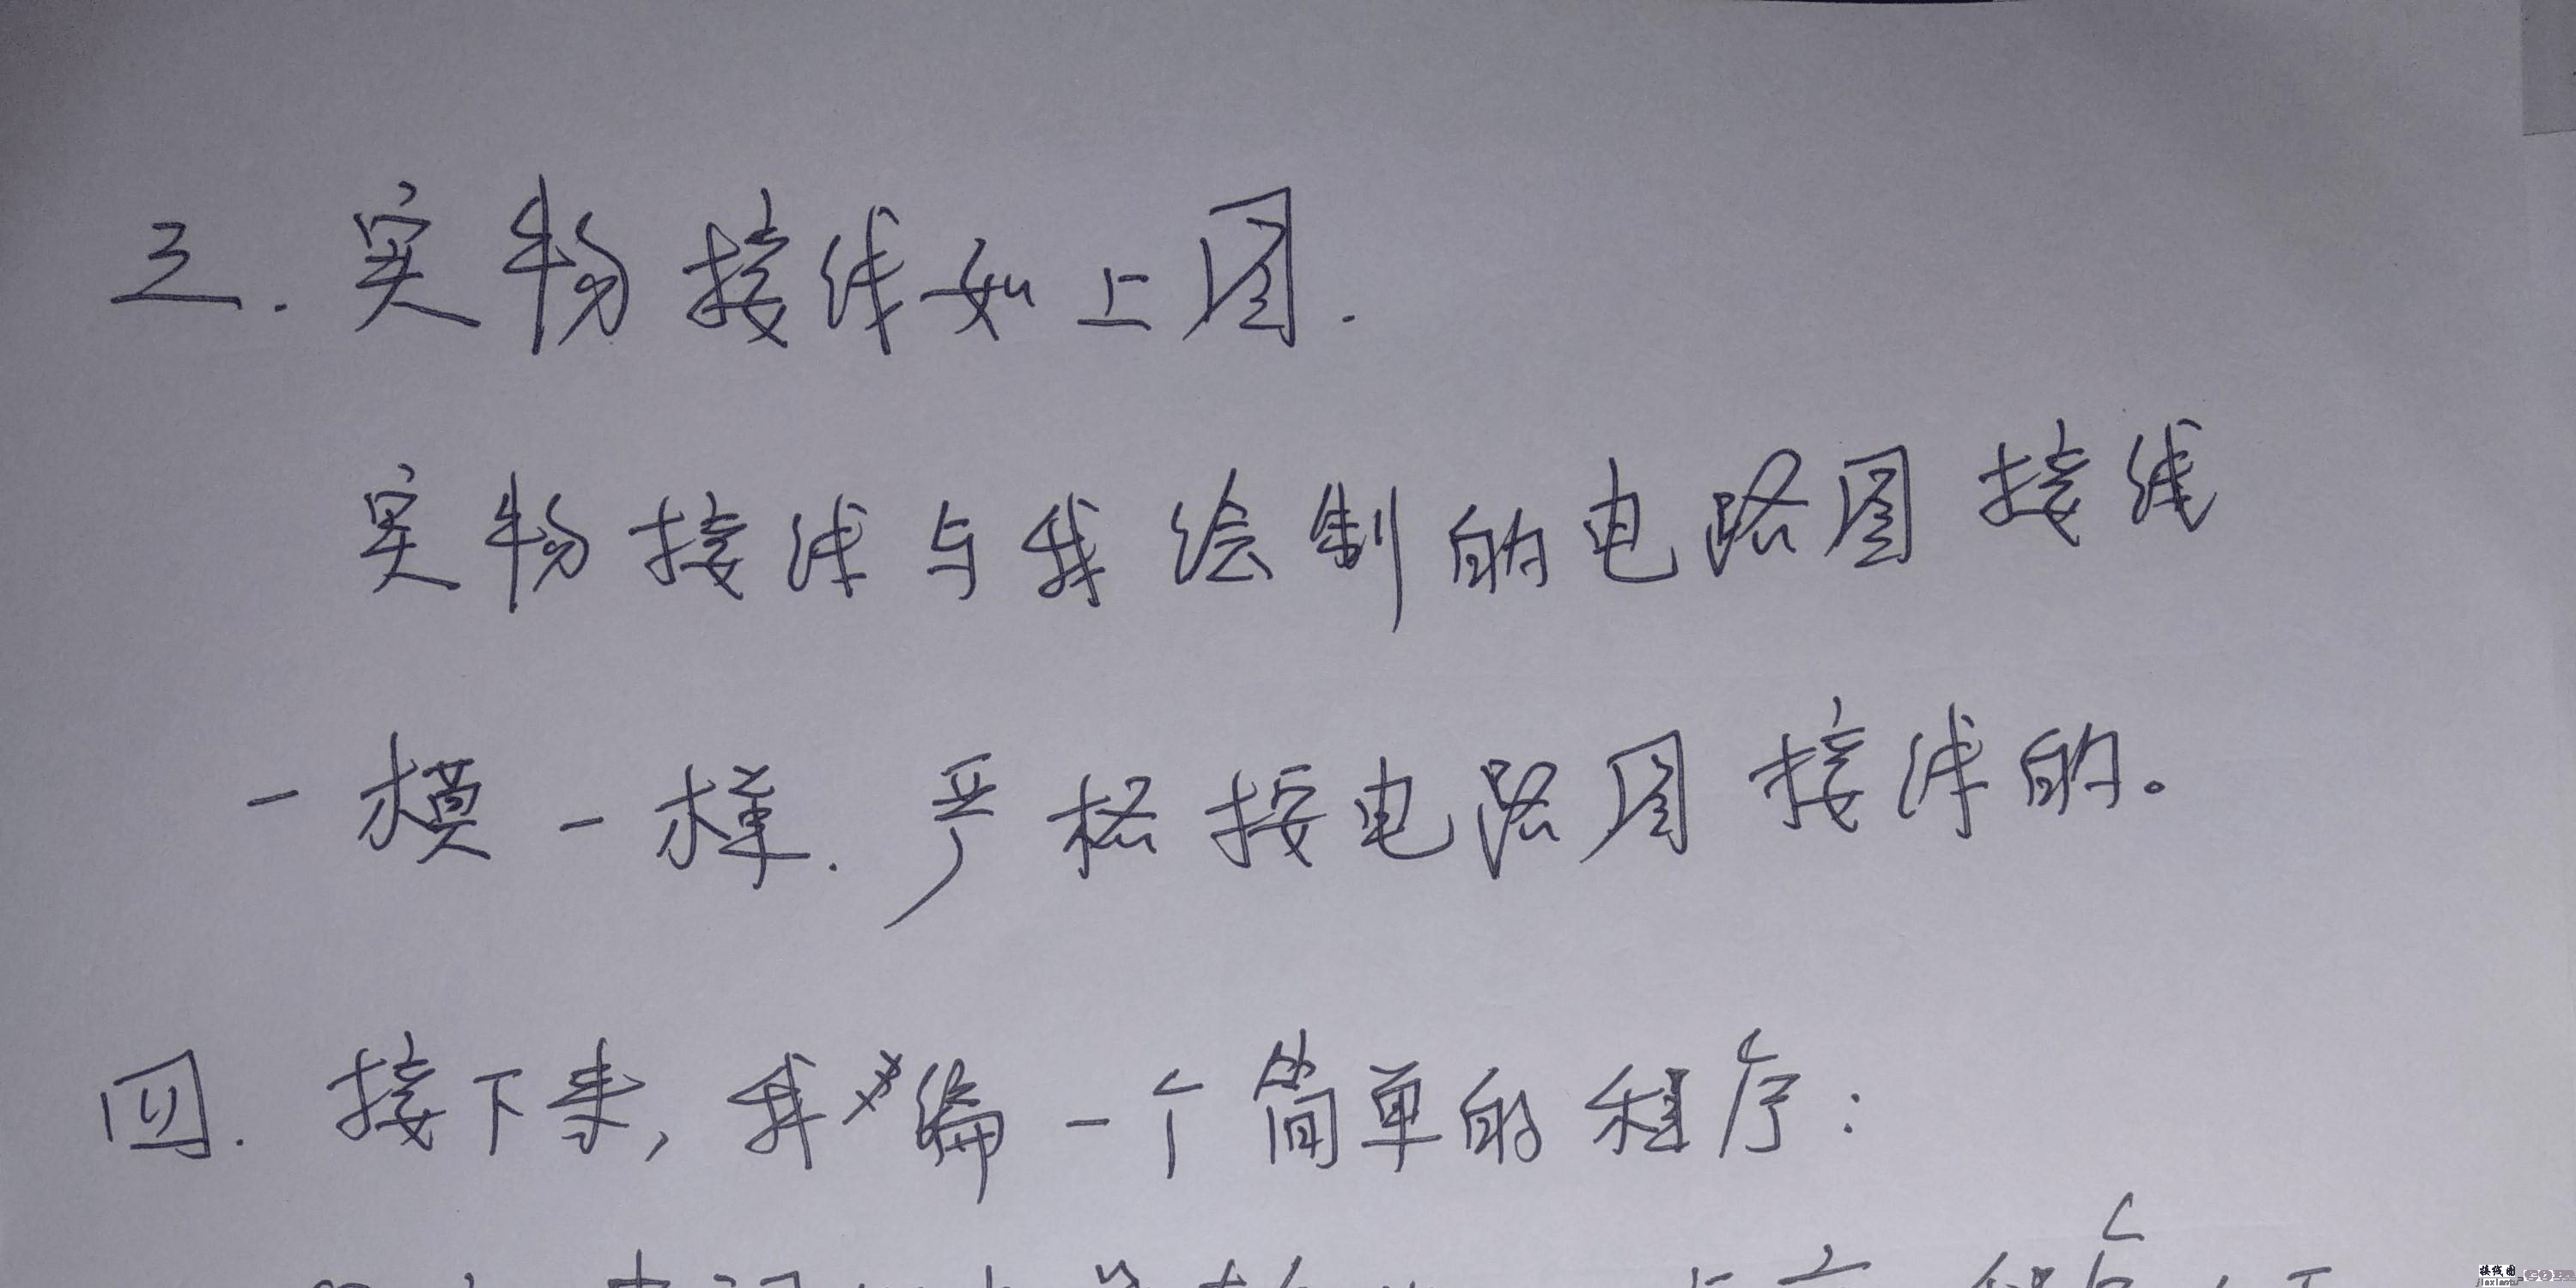 三.实物接线如上图.
实物接线与我绘制的电路图接线
一模一样.严格按电路图接线的。
四.接下来,我编一个简单的程序:
接线图
jiexiantu .com